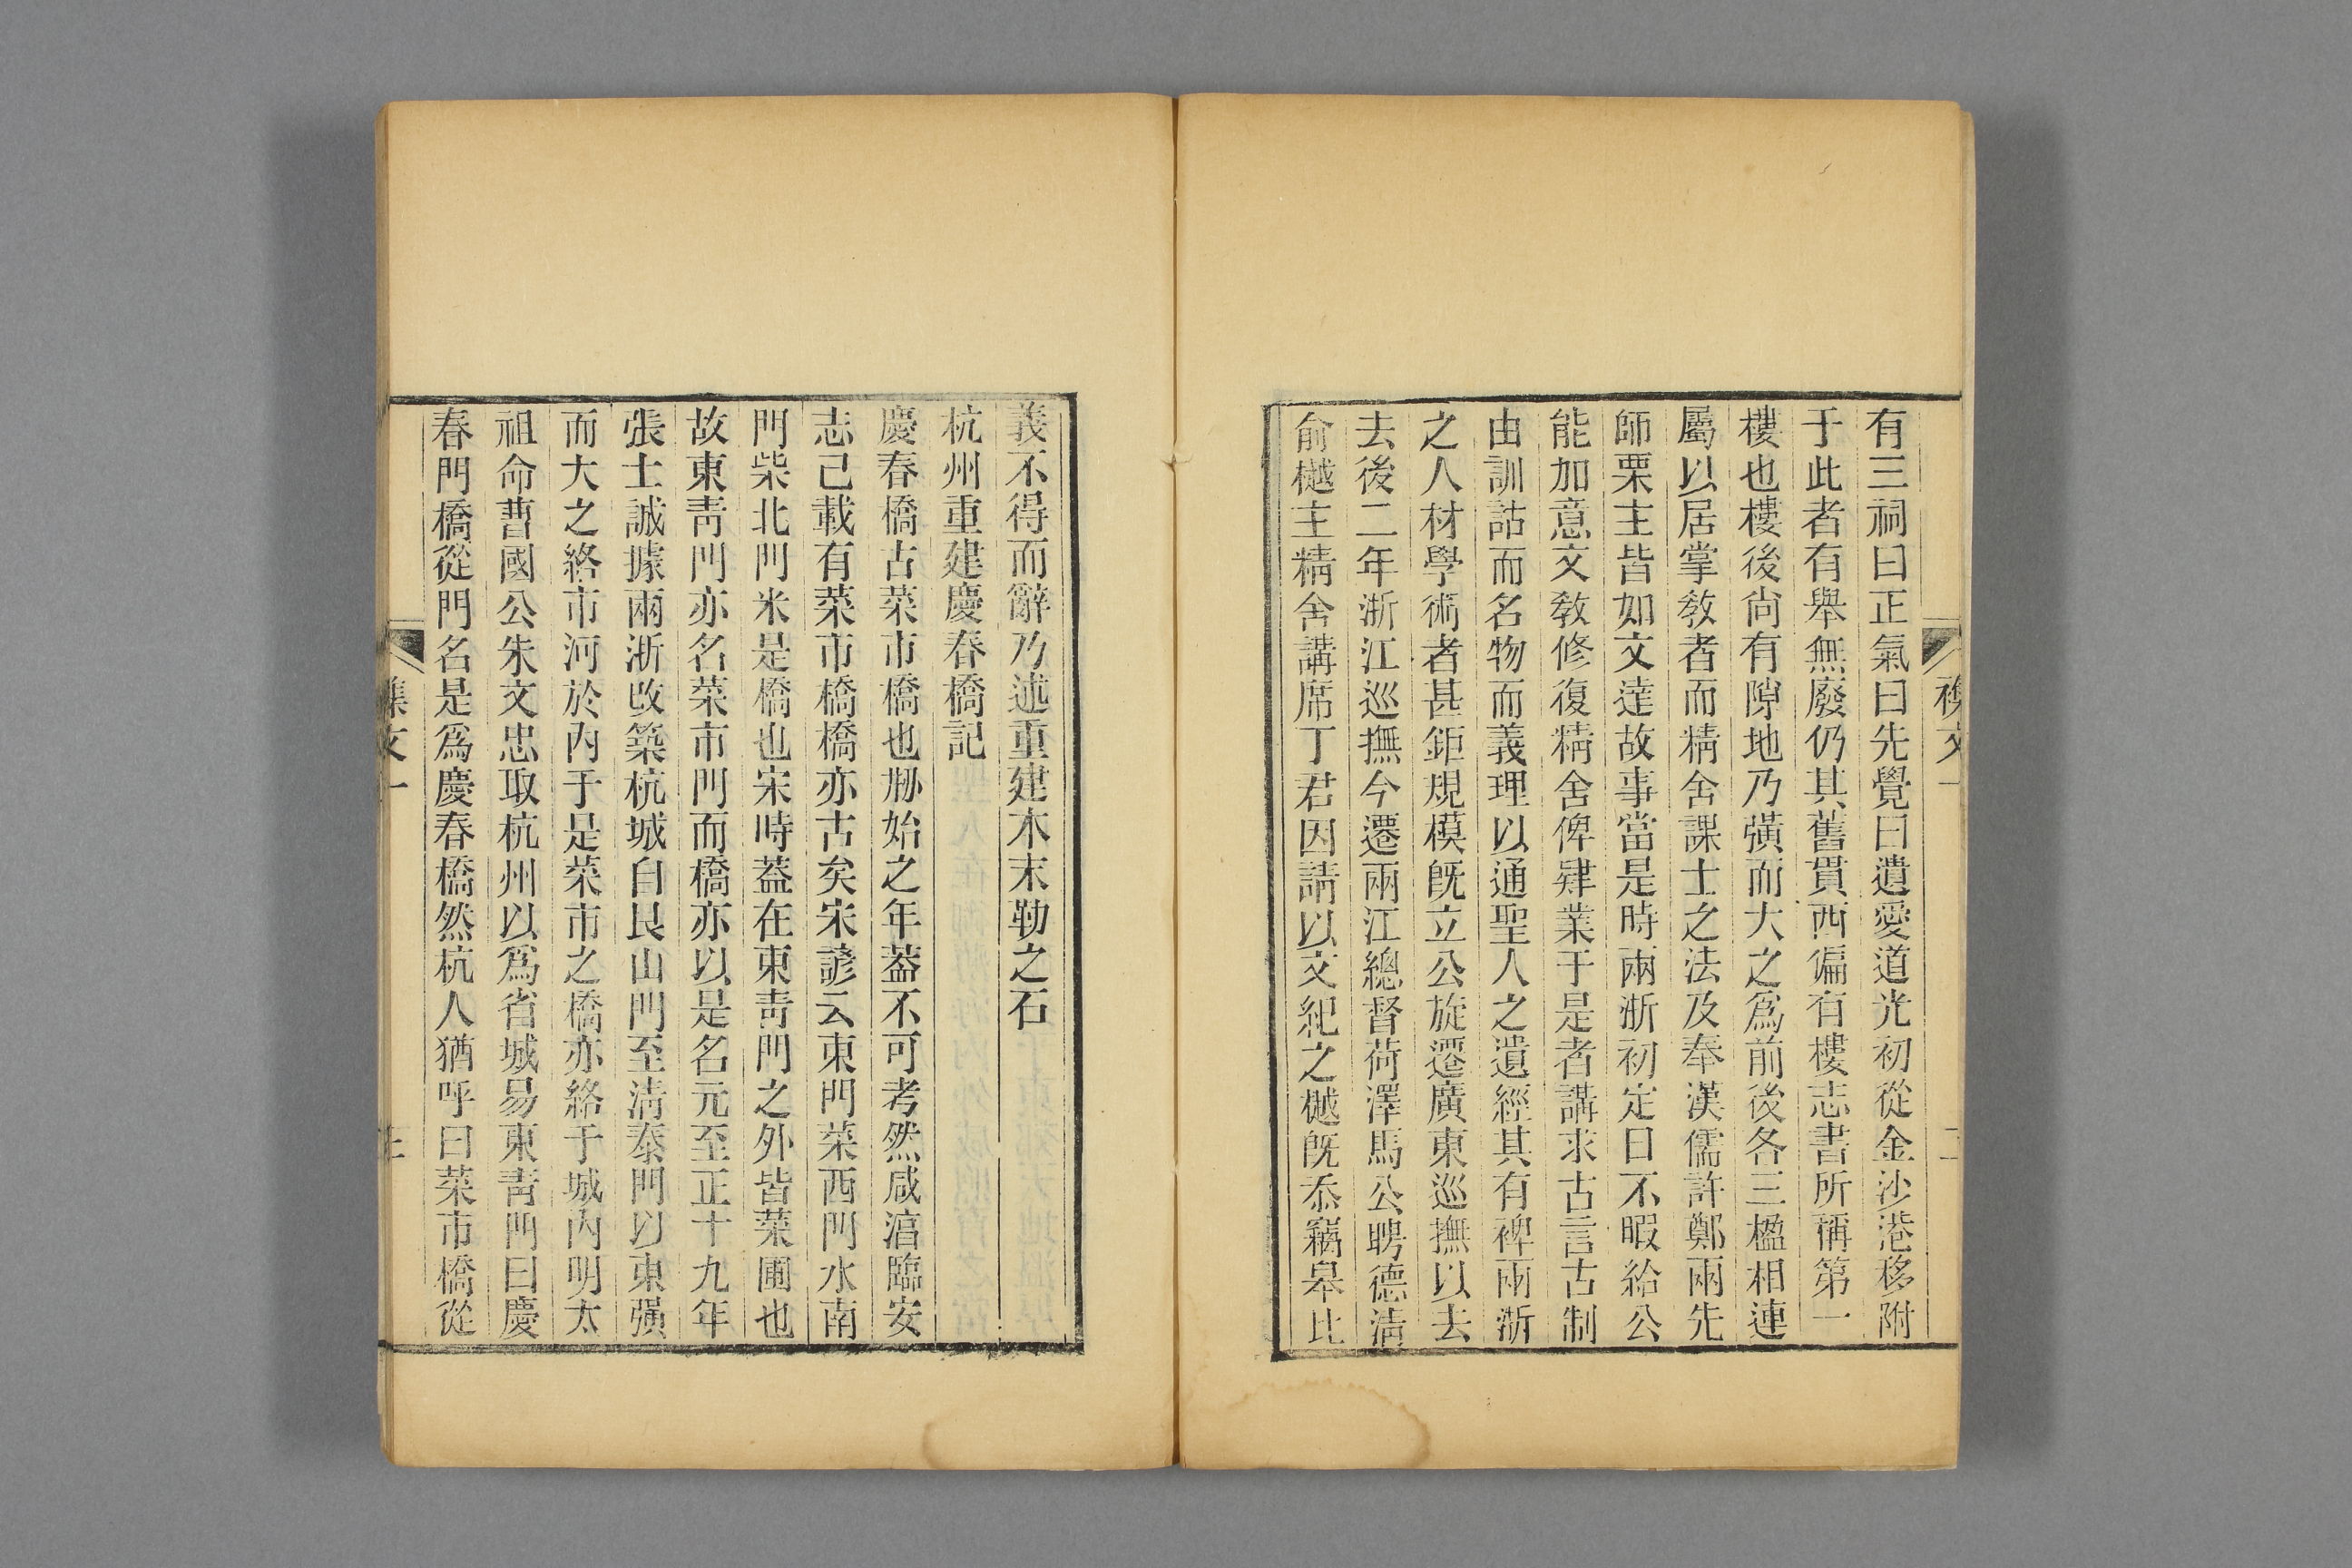 有三祠曰正氣曰先覺曰遺愛道光初從金沙港移附
于此者有舉無廢仍其舊貫西偏有樓志書所稱第一
樓也樓後尙有隙地乃彍而大之爲前後各三楹相連
屬以居掌敎者而精舍課士之法及奉漢儒許鄭兩先
師栗主皆如文達故事當是時兩浙初定日不暇給公
能加意文敎修復精舍俾肄業于是者講求古言古制
由訓詁而名物而義理以通聖人之遺經其有裨兩浙
之人材學術者甚鉅規模旣立公旋遷廣東巡撫以去
去後二年浙江巡撫今遷兩江總督荷澤馬公聘德淸
俞樾主精舍講席丁君因請以文紀之樾旣忝竊皋比
義不得而辭乃述重建本末勒之石
杭州重建慶春橋記
慶春橋古菜市橋也剙始之年葢不可考然咸淳臨安
志已載有菜市橋橋亦古矣宋諺云東門菜西門水南
門柴北門米是橋也宋時葢在東靑門之外皆菜圃也
故東靑門亦名菜市門而橋亦以是名元至正十九年
張士誠據兩浙改築杭城自艮山門至淸泰門以東彍
而大之絡市河於內于是菜市之橋亦絡于城內明太
祖命曹國公朱文忠取杭州以爲省城易東靑門曰慶
春門橋從門名是爲慶春橋然杭人猶呼曰菜市橋從